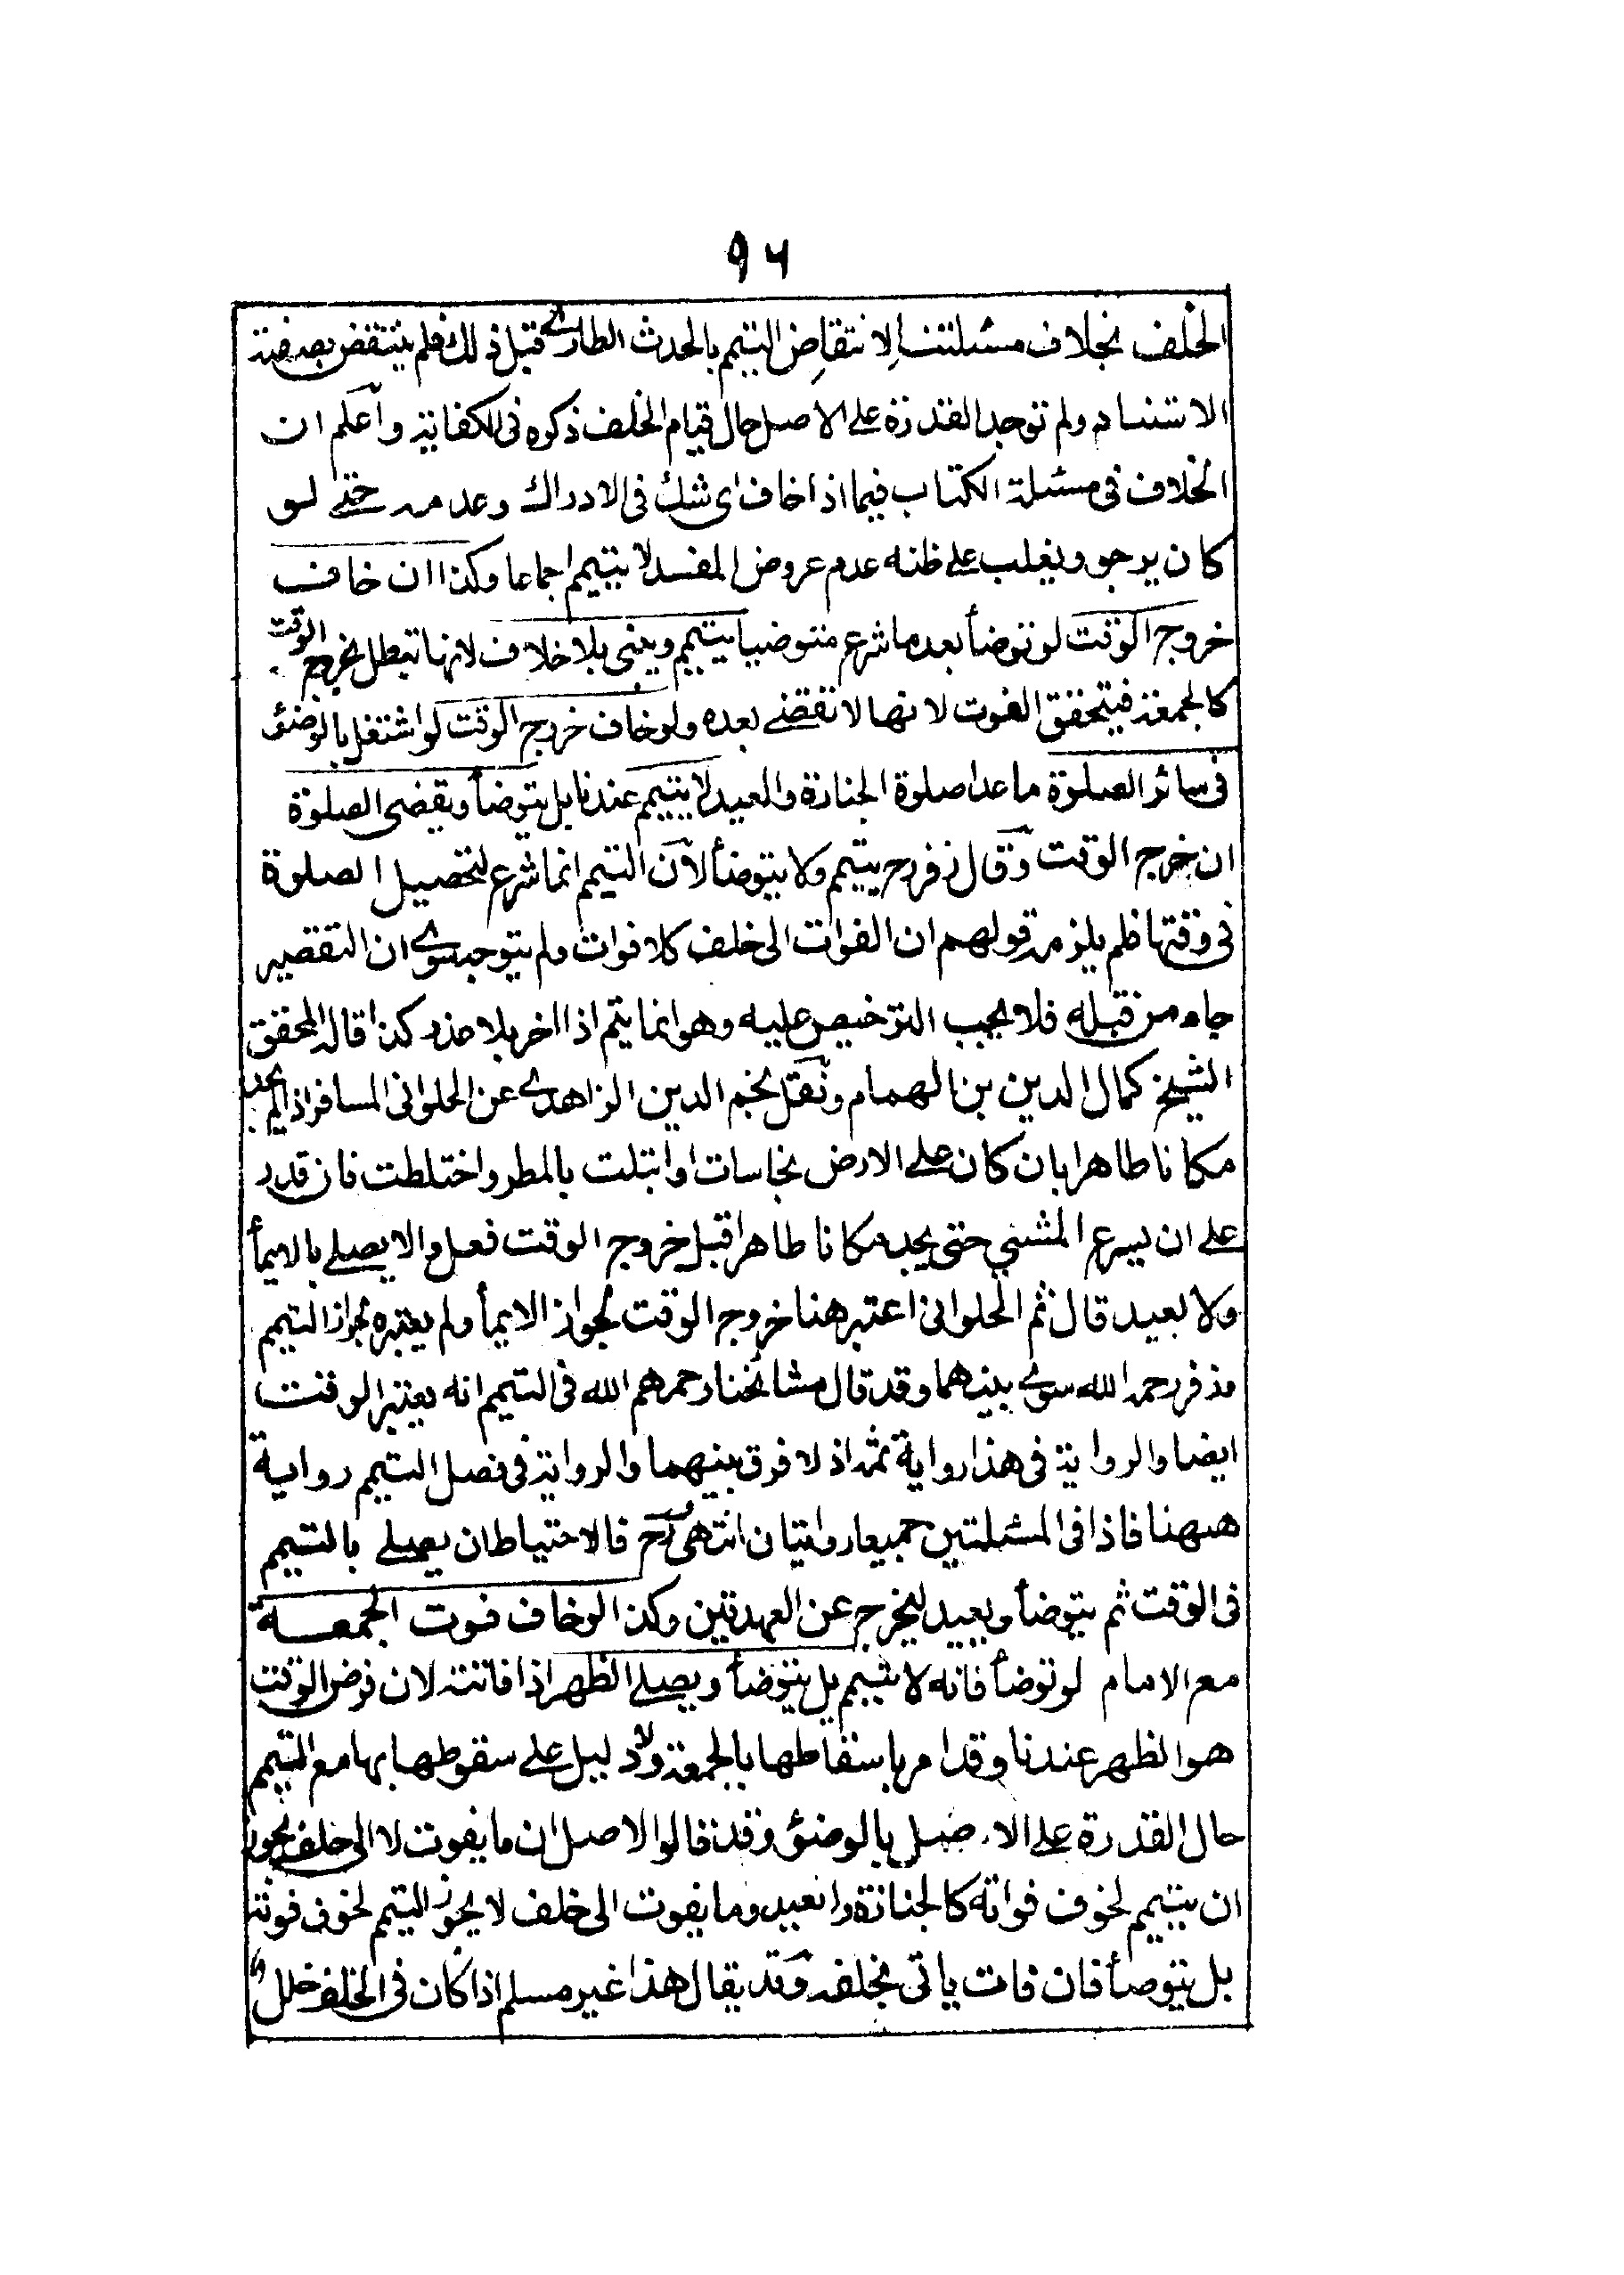 ٩٦
الخلف بخلاف مسئلتنا لانتقاض التيمم بالحدث الطارئ قبل ذلك فلم ينتقض بصفة
الاستناد ولم توجد القدرة على الاصل حال قيام الخلف ذكره فى الكفاية واعلم ان
الخلاف فى مسئلة الكتاب فيما اذا خاف اى شك فى الادراك وعدمه حتى لو
كان يرجو ويغلب على ظنه عدم عروض المفسد لا يتيمم اجماعا وكذا ان خاف
خروج الوقت لو توضأ بعد ما شرع متوضيا يتيمم ويبنى بلا خلاف لانها تبطل بخروج الوقت
كالجمعة فيتحقق الفوت لانها لا تقضى بعده ولو خاف خروج الوقت لو اشتغل بالوضوء
فى سائر الصلوة ما عدا صلوة الجنازة والعيد لا يتيمم عندنا بل يتوضأ ويقضى الصلوة
ان خرج الوقت وقال زفر رح يتيمم ولا يتوضأ لان التيمم انما شرع لتحصيل الصلوة
فى وقتها فلم يلزمه قولهم ان الفوات الى خلف كلا فوات ولم يتوجه سوى ان التقصير
جاء من قبله فلا يجب الترخيص عليه وهو انما يتم اذا اخر بلا عذر كذا قاله المحقق
الشيخ كمال الدين بن الهمام ونقل نجم الدين الزاهدى عن الحلوانى المسافر اذا لم يجد
مكانا طاهرا بان كان على الارض نجاسات وابتلت بالمطر واختلطت فان قدر
على ان يسرع المشي حتى يجد مكانا طاهرا قبل خروج الوقت فعل والا يصلى بالايمأ
ولا يعيد قال ثم الحلوانى اعتبر هنا خروج الوقت لجواز الايمأ ولم يعتبره لجواز التيمم
وزفر رحمه الله سوى بينهما وقد قال مشائخنا رحمهم الله فى التيمم انه يعتبر الوقت
ايضا والرواية فى هذا رواية ثمه اذ لا فرق بينهما والرواية فى فصل التيمم رواية
ههنا فاذا فى المسئلتين جميعا روايتان انتهى وح فالاحتياط ان يصلى بالتيمم
فى الوقت ثم يتوضأ ويعيد ليخرج عن العهدتين وكذا لو خاف فوت الجمعة
مع الامام لو توضأ فانه لا يتيمم بل يتوضأ ويصلى الظهر اذا فاتته لان فرض الوقت
هو الظهر عندنا وقد امر باسقاطها بالجمعة ولا دليل على سقوطها بها مع التيمم
حال القدرة على الاصل بالوضوء وقد قالوا الاصل ان ما يفوت لا الى خلف يجوز
ان يتيمم لخوف فواته كالجنازة والعيد وما يفوت الى خلف لا يجوز التيمم لخوف فوته
بل يتوضأ فان فات ياتى بخلفه وقد يقال هذا غير مسلم اذا كان فى الخلف خلل